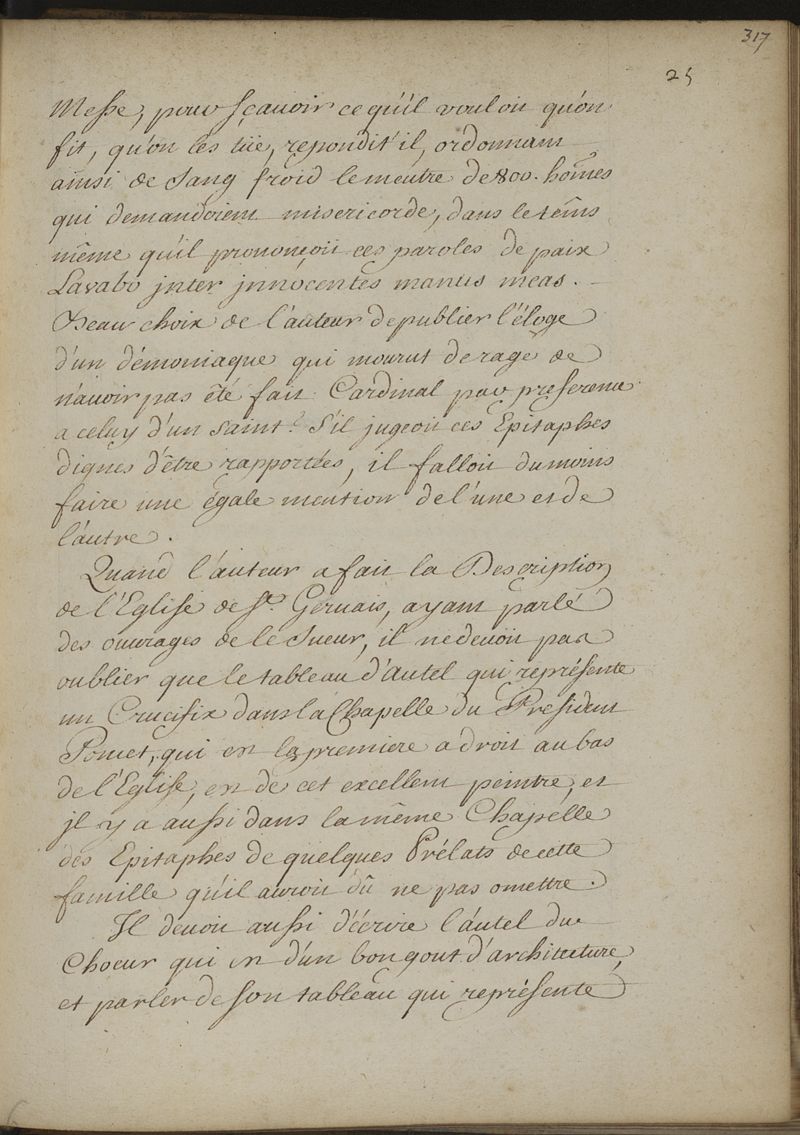 317
25
Messe, pour sçauoir ce qu'il vouloit qu'on
fit, qu'on les tüe, repondit il, ordonnant
ainsi de sang froid le meutre de 800. hom̃es
qui demandoient misericorde, dans le tem̃s
même qu'il prononçoit ces paroles de paix
Lavabo jnter jnnocentes manus meas.
Beau choix de l'auteur de publier l'éloge
d'un démoniaque qui mourut de rage de
n'auoir pas été fait Cardinal par preference
a celuy d'un saint? S'il jugeoit ces Epitaphes
dignes d'être rapportées, il falloit du moins
faire une égale mention de l'une et de
l'autre.
Quand l'auteur a fait la Description
de l'Eglise de St. Geruais, ayant parlé
des ouurages de le Sueur, il ne deuoit pas
oublier que le tableau d'Autel qui représente
un Crucifix dans la Chapelle du President
Pomet, qui est la premiere a droit au bas
de l'Eglise, est de cet excellent peintre, et
jl y a aussi dans la même Chapelle
des Epitaphes de quelques Prélats de cette
famille qu'il auroit dû ne pas omettre.
Il deuoit aussi d'écrire l'autel du
Choeur qui est d'un bon gout d'architeture,
et parler de son tableau qui représente